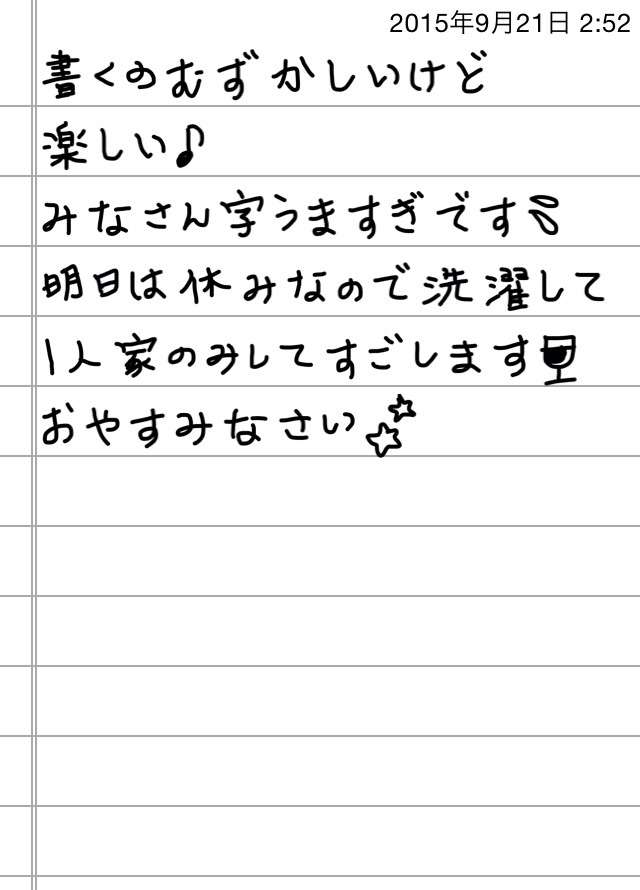 2015年9月21日 2:52
書くのむずかしいけど
楽しい♪
みなさん字うますぎです💦
明日は休みなので洗濯して
1人家のみしてすごします🍷
おやすみなさい✨